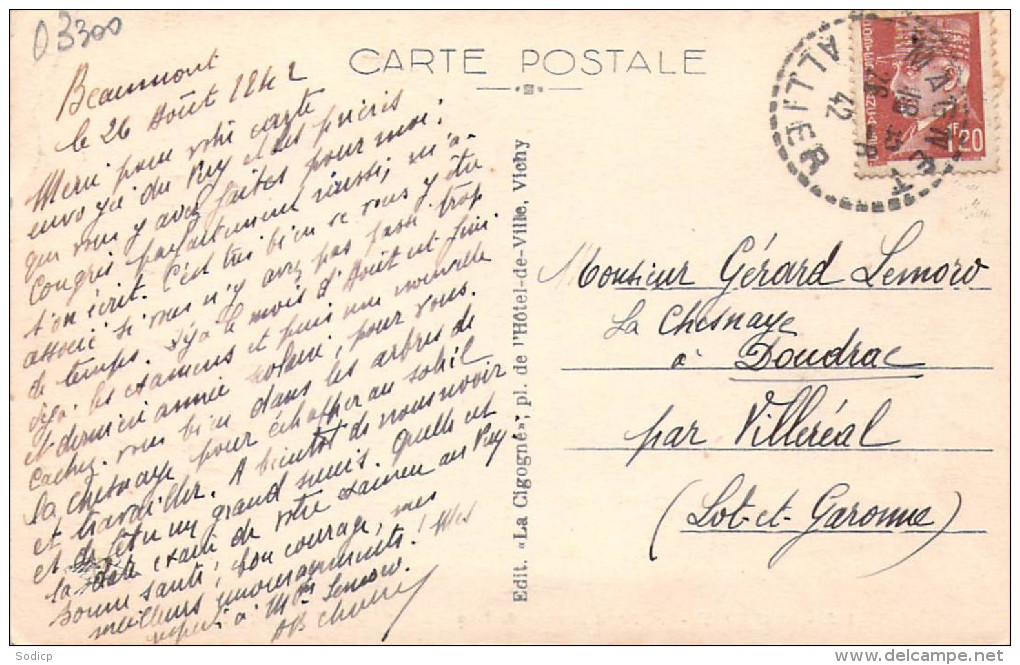 03300
CARTE POSTALE
Beaumont
le 26 Août 1942
Merci pour votre carte
envoyée du Puy et les prières
que vous y avez faites pour moi;
Congrès parfaitement réussi, m'a-
t'on écrit. C'est très bien se vous y être
associé si vous n'y avez pas passé trop
de temps. Déjà le mois d'Août est fini
déjà les examens et puis une nouvelle
et dernière année scolaire, pour vous.
Cachez-vous bien dans les arbres de
la Chesnaye pour échapper au soleil
et travailler. A bientôt de nous revoir
et un grand merci. Quelle est
la date exacte de votre examen au Puy
bonne santé, bon courage, mes
meilleurs encouragements! Mes
respects à Mme Lemoro.
Edit. «La Cigogne»; pl. de l'Hôtel-de-Ville, Vichy
MAGNET
ALLIER
26
-8
42
1F20
Monsieur Gérard Lemoro
La Chesnaye
à Doudrac
par Villeréal
(Lot-et-Garonne)
Sodicp
delcampe.net